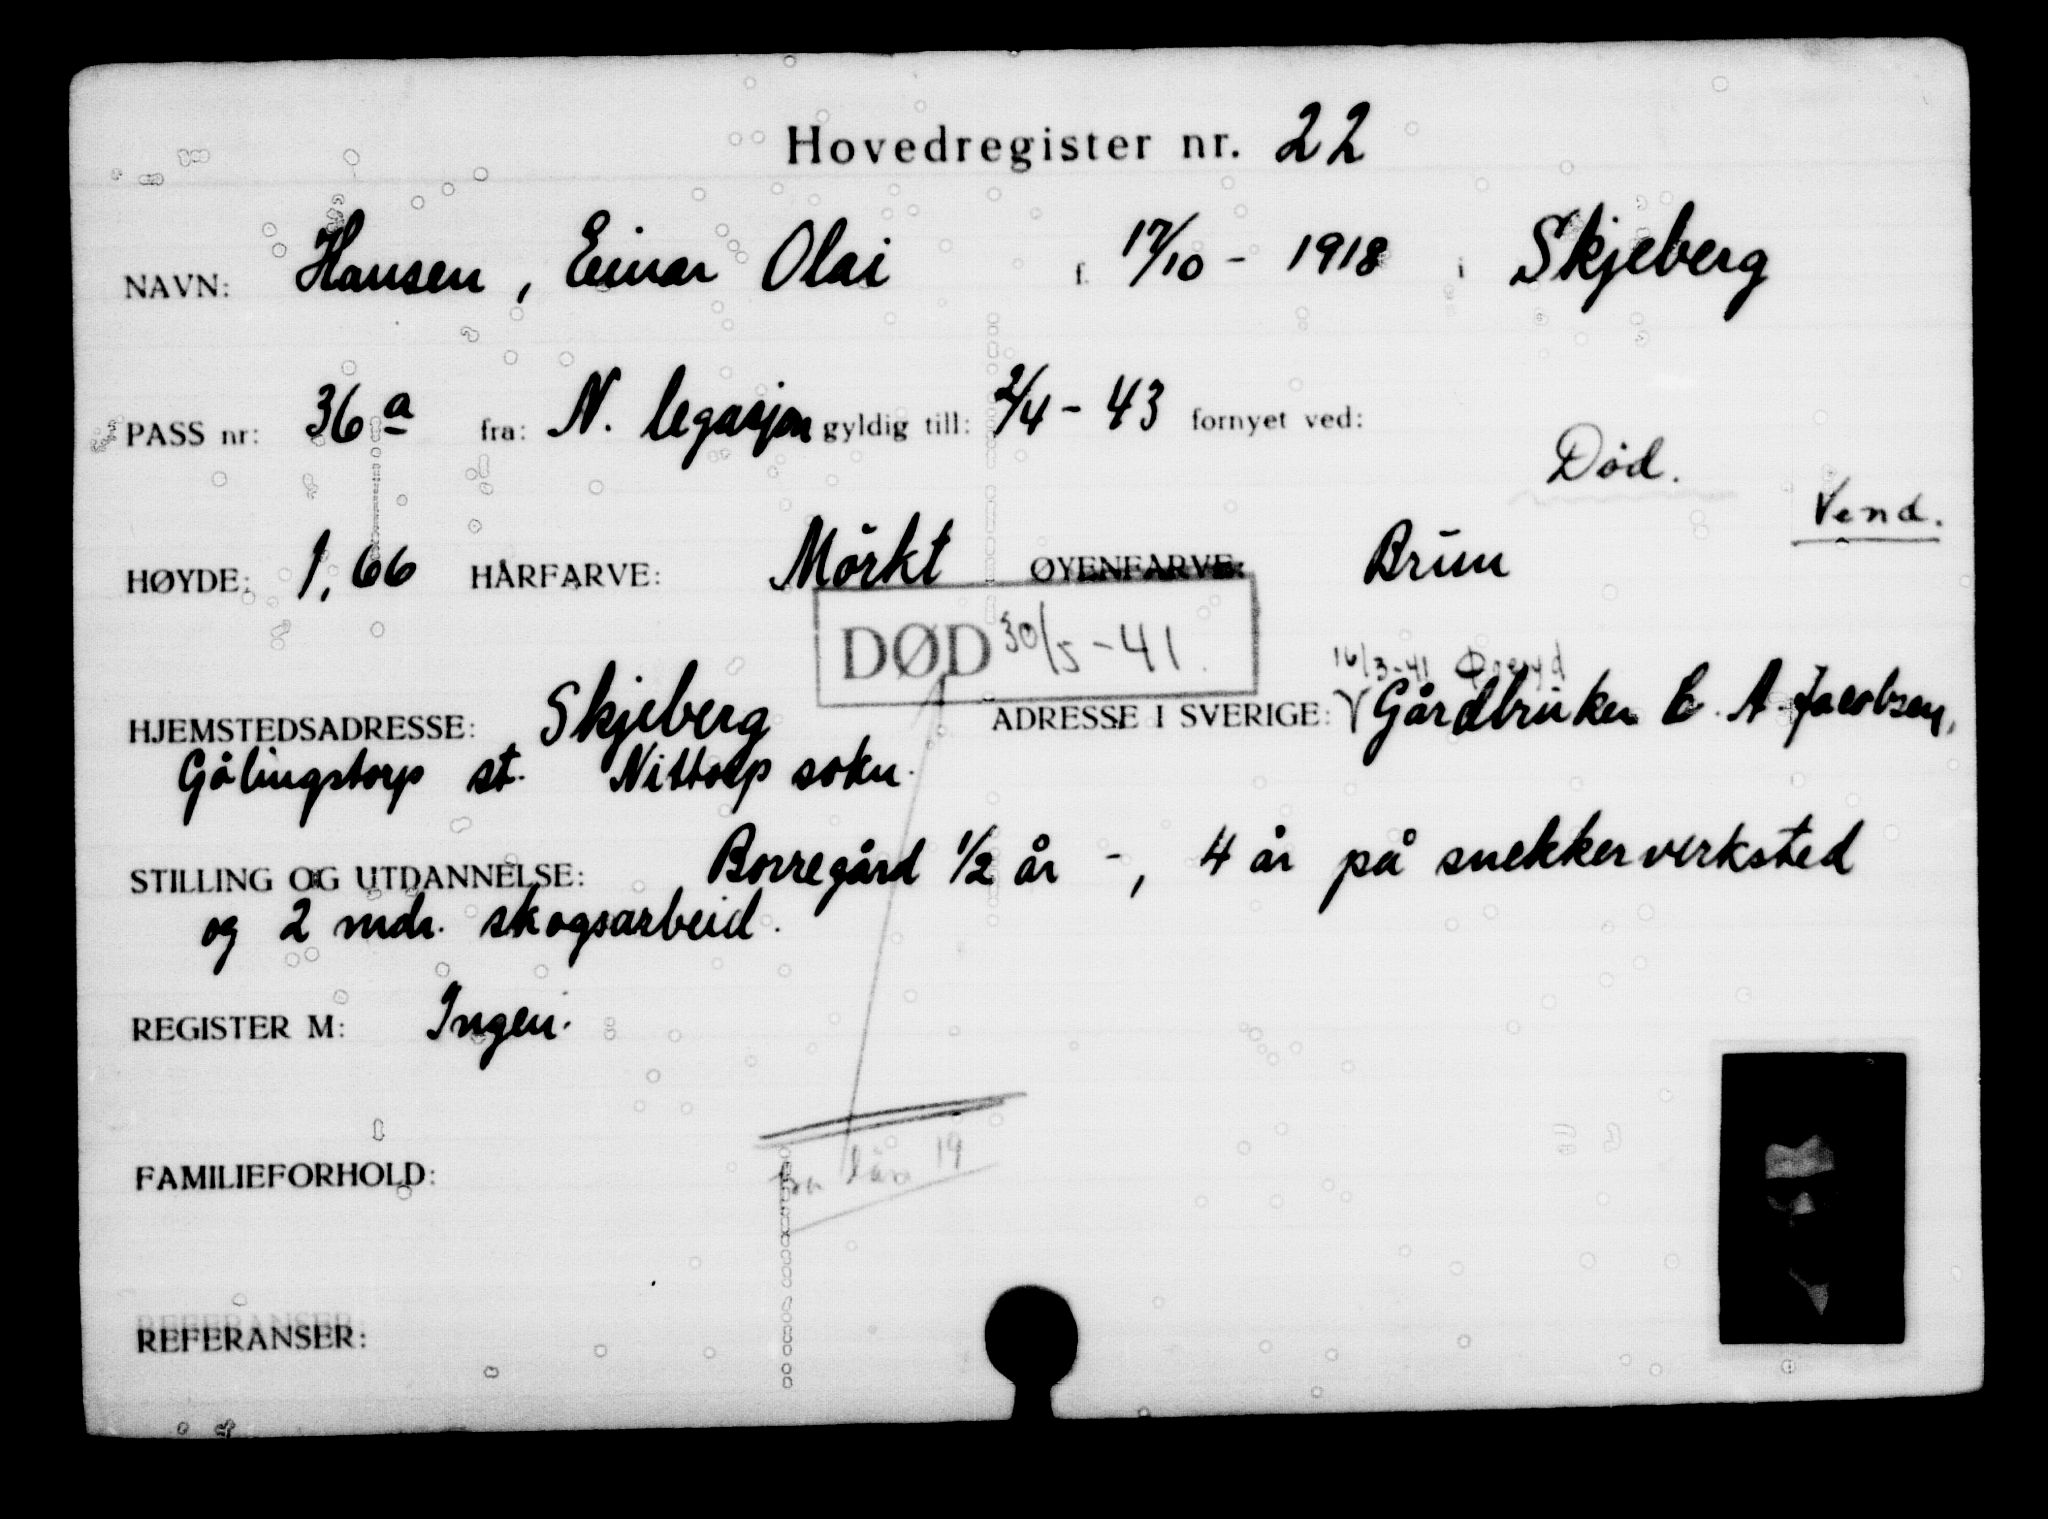 Hovedregister nr. 22
NAVN: Hansen, Einar Olai f. 17/10 - 1918 i Skjeberg
PASS nr: 36 a fra: N. legasjon gyldig till: 2/4 - 43 fornyet ved:
Død.
Vend.
HØYDE: 1,66 HÅRFARVE: Mörkt ØYENFARVE: Brun
DØD 30/5 - 41.
16/3-41
HJEMSTEDSADRESSE: Skjeberg ADRESSE I SVERIGE: Gårdbruker E. A. Jacobsen,
Gålingstorp st. Nittorp sokn.
STILLING OG UTDANNELSE: Borregård 1/2 år -, 4 år på snekkerverksted
og 2 mdr. skogsarbeid.
REGISTER M: Ingen.
19
FAMILIEFORHOLD:
REFERANSER: